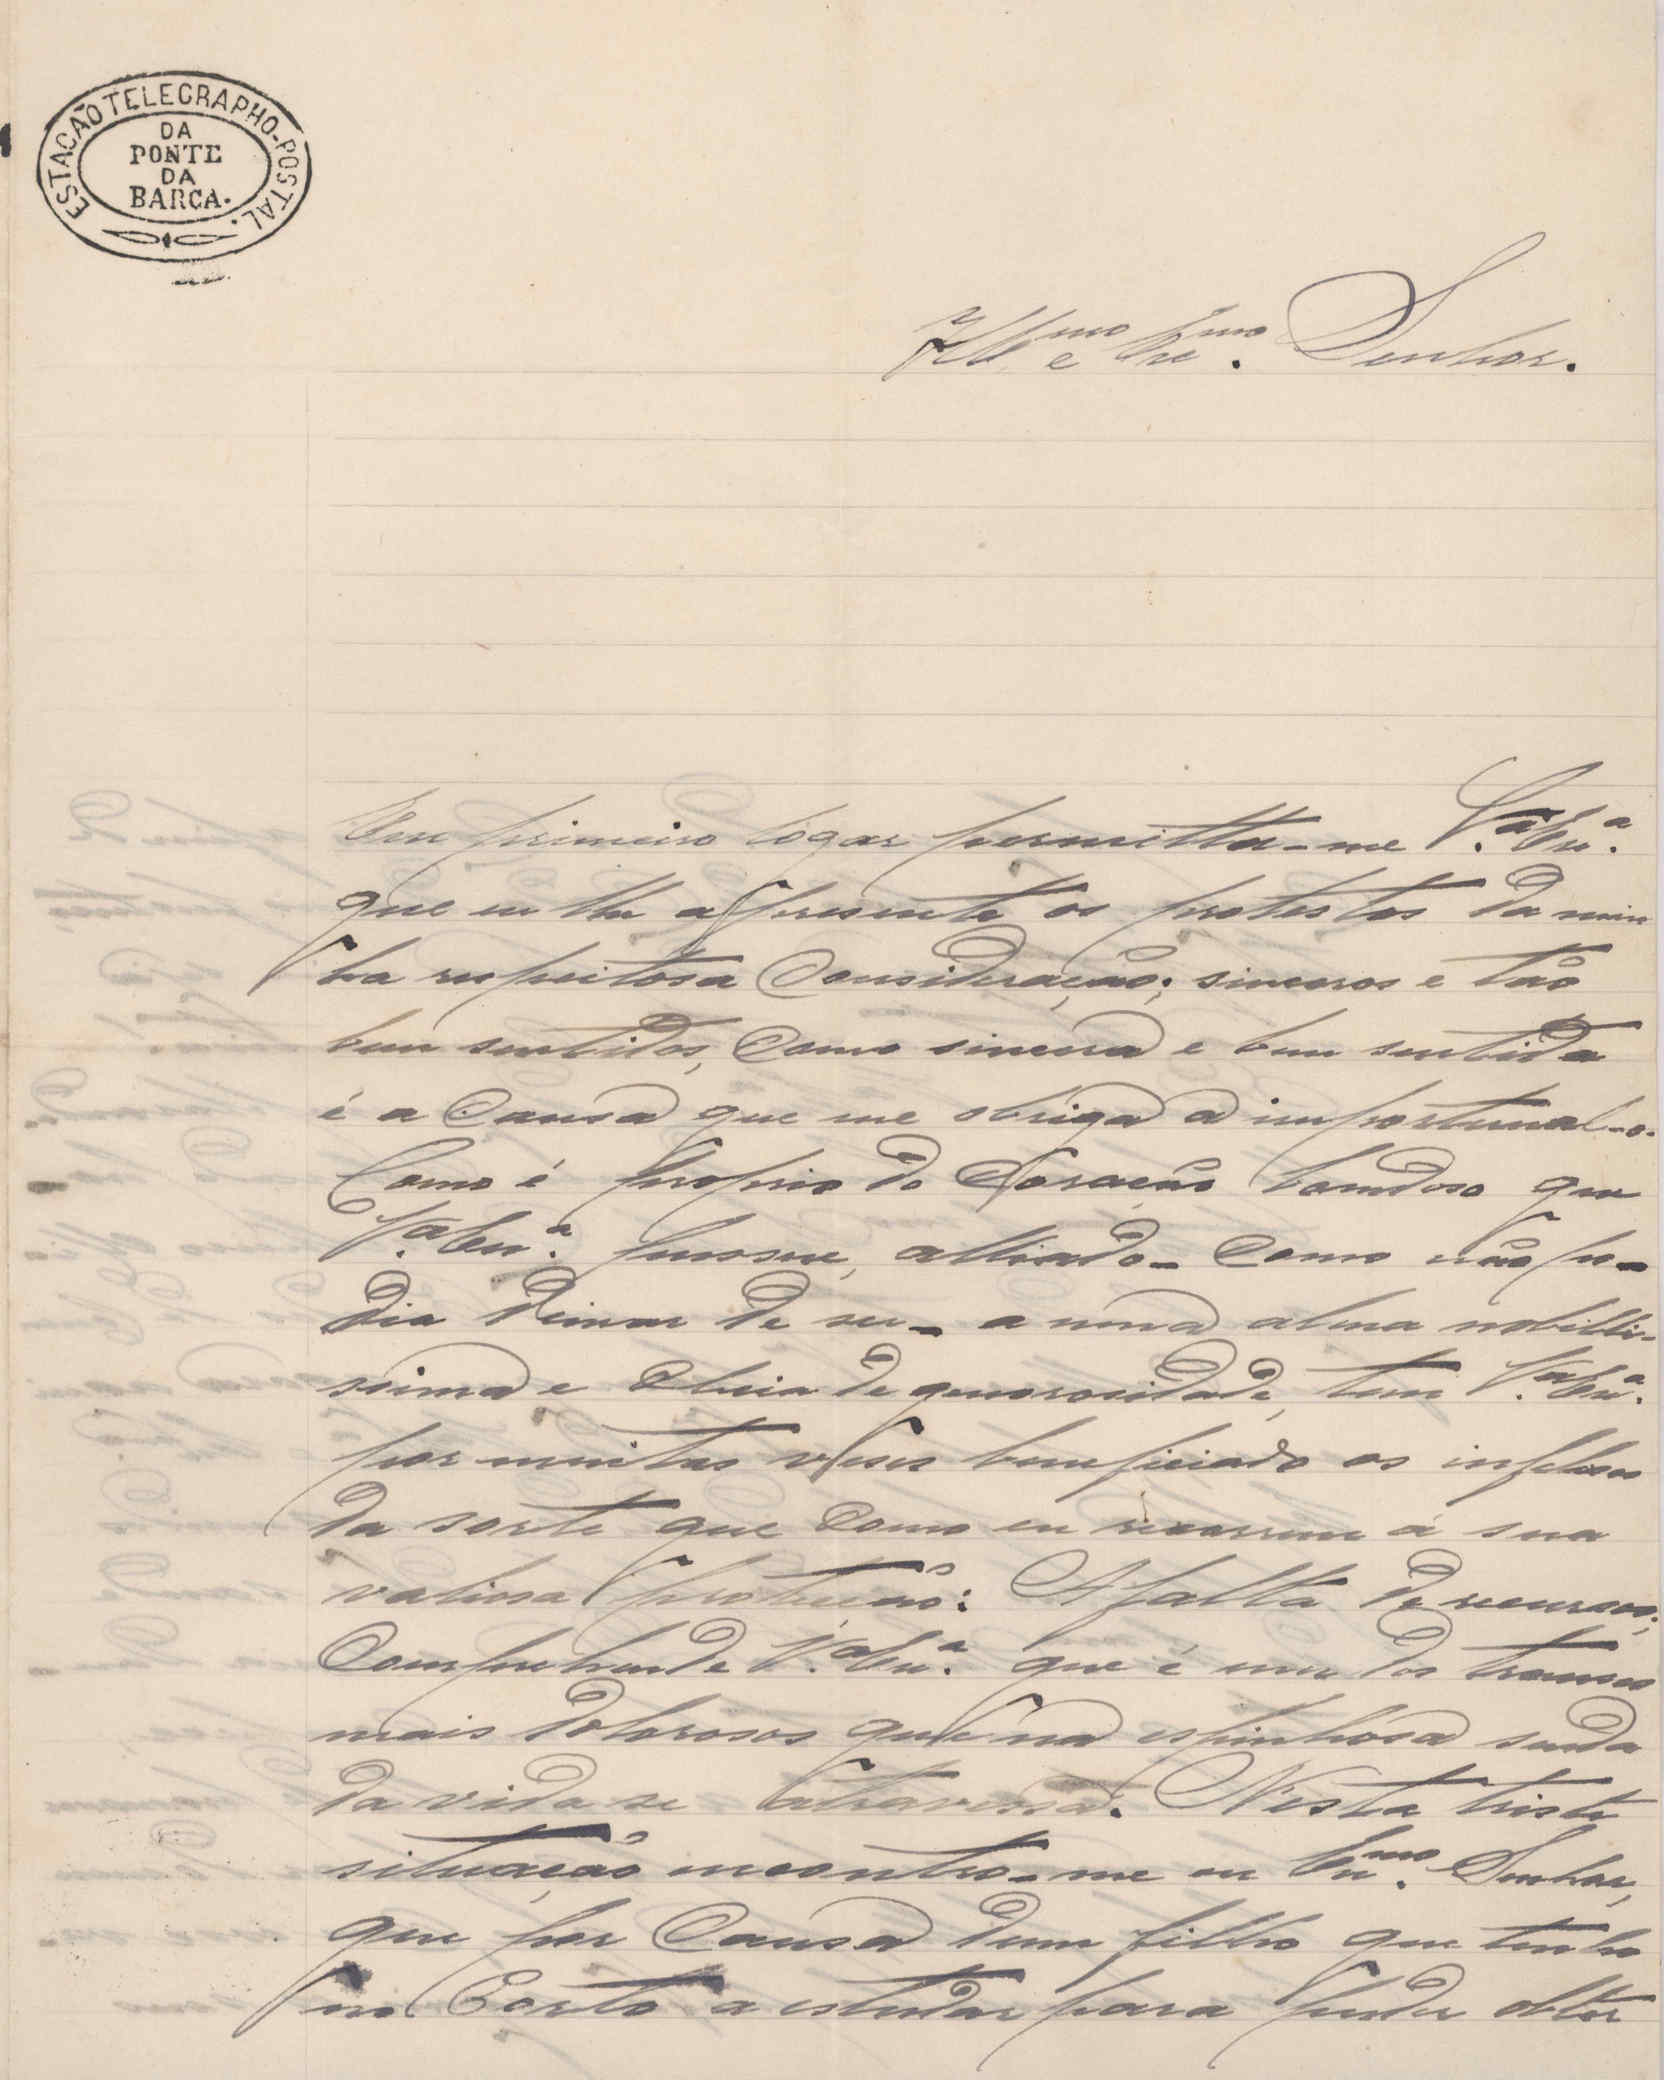 ESTAÇÃO TELEGRAPHO-POSTAL.
DA
PONTE
DA
BARCA.
Ill.mo e Ex.mo Senhor.
Em primeiro logar permitta-me V.a Ex.a
que eu lhe appresente os protestos da min
ha respeitosa consideração; sinceros e tão
bem sentidos, como sincera e bem sentida
é a causa que me obriga a importunal-o.
Como é proprio do coração bondoso que
V.a Ex.a possue, alliado- como não po-
dia deixar de ser- a uma alma nobilli-
ssima e cheia de generosidade, tem V.a Ex.a
por muitas veses beneficiado os infelises
da sorte que como eu recorrem á sua
valiosa protecção: A falta de recursos;
comprehende V.a Ex.a que é um dos transes
mais dolorosos que na espinhosa senda
da vida se atravessa. N'esta triste
situação encontro-me eu Ex.mo Senhor,
que por causa dum filho que tenho
no Porto a estudar para puder obter